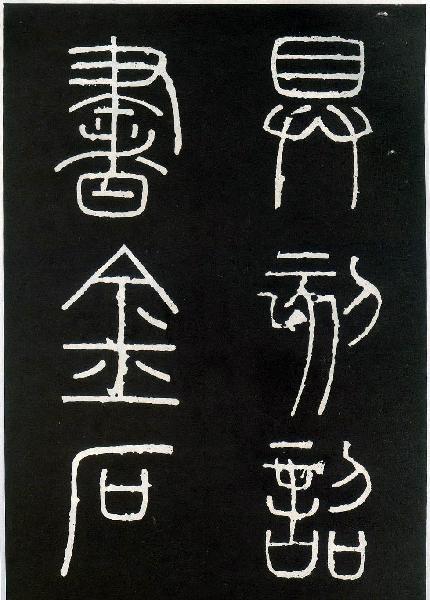 具刻詔
書金石